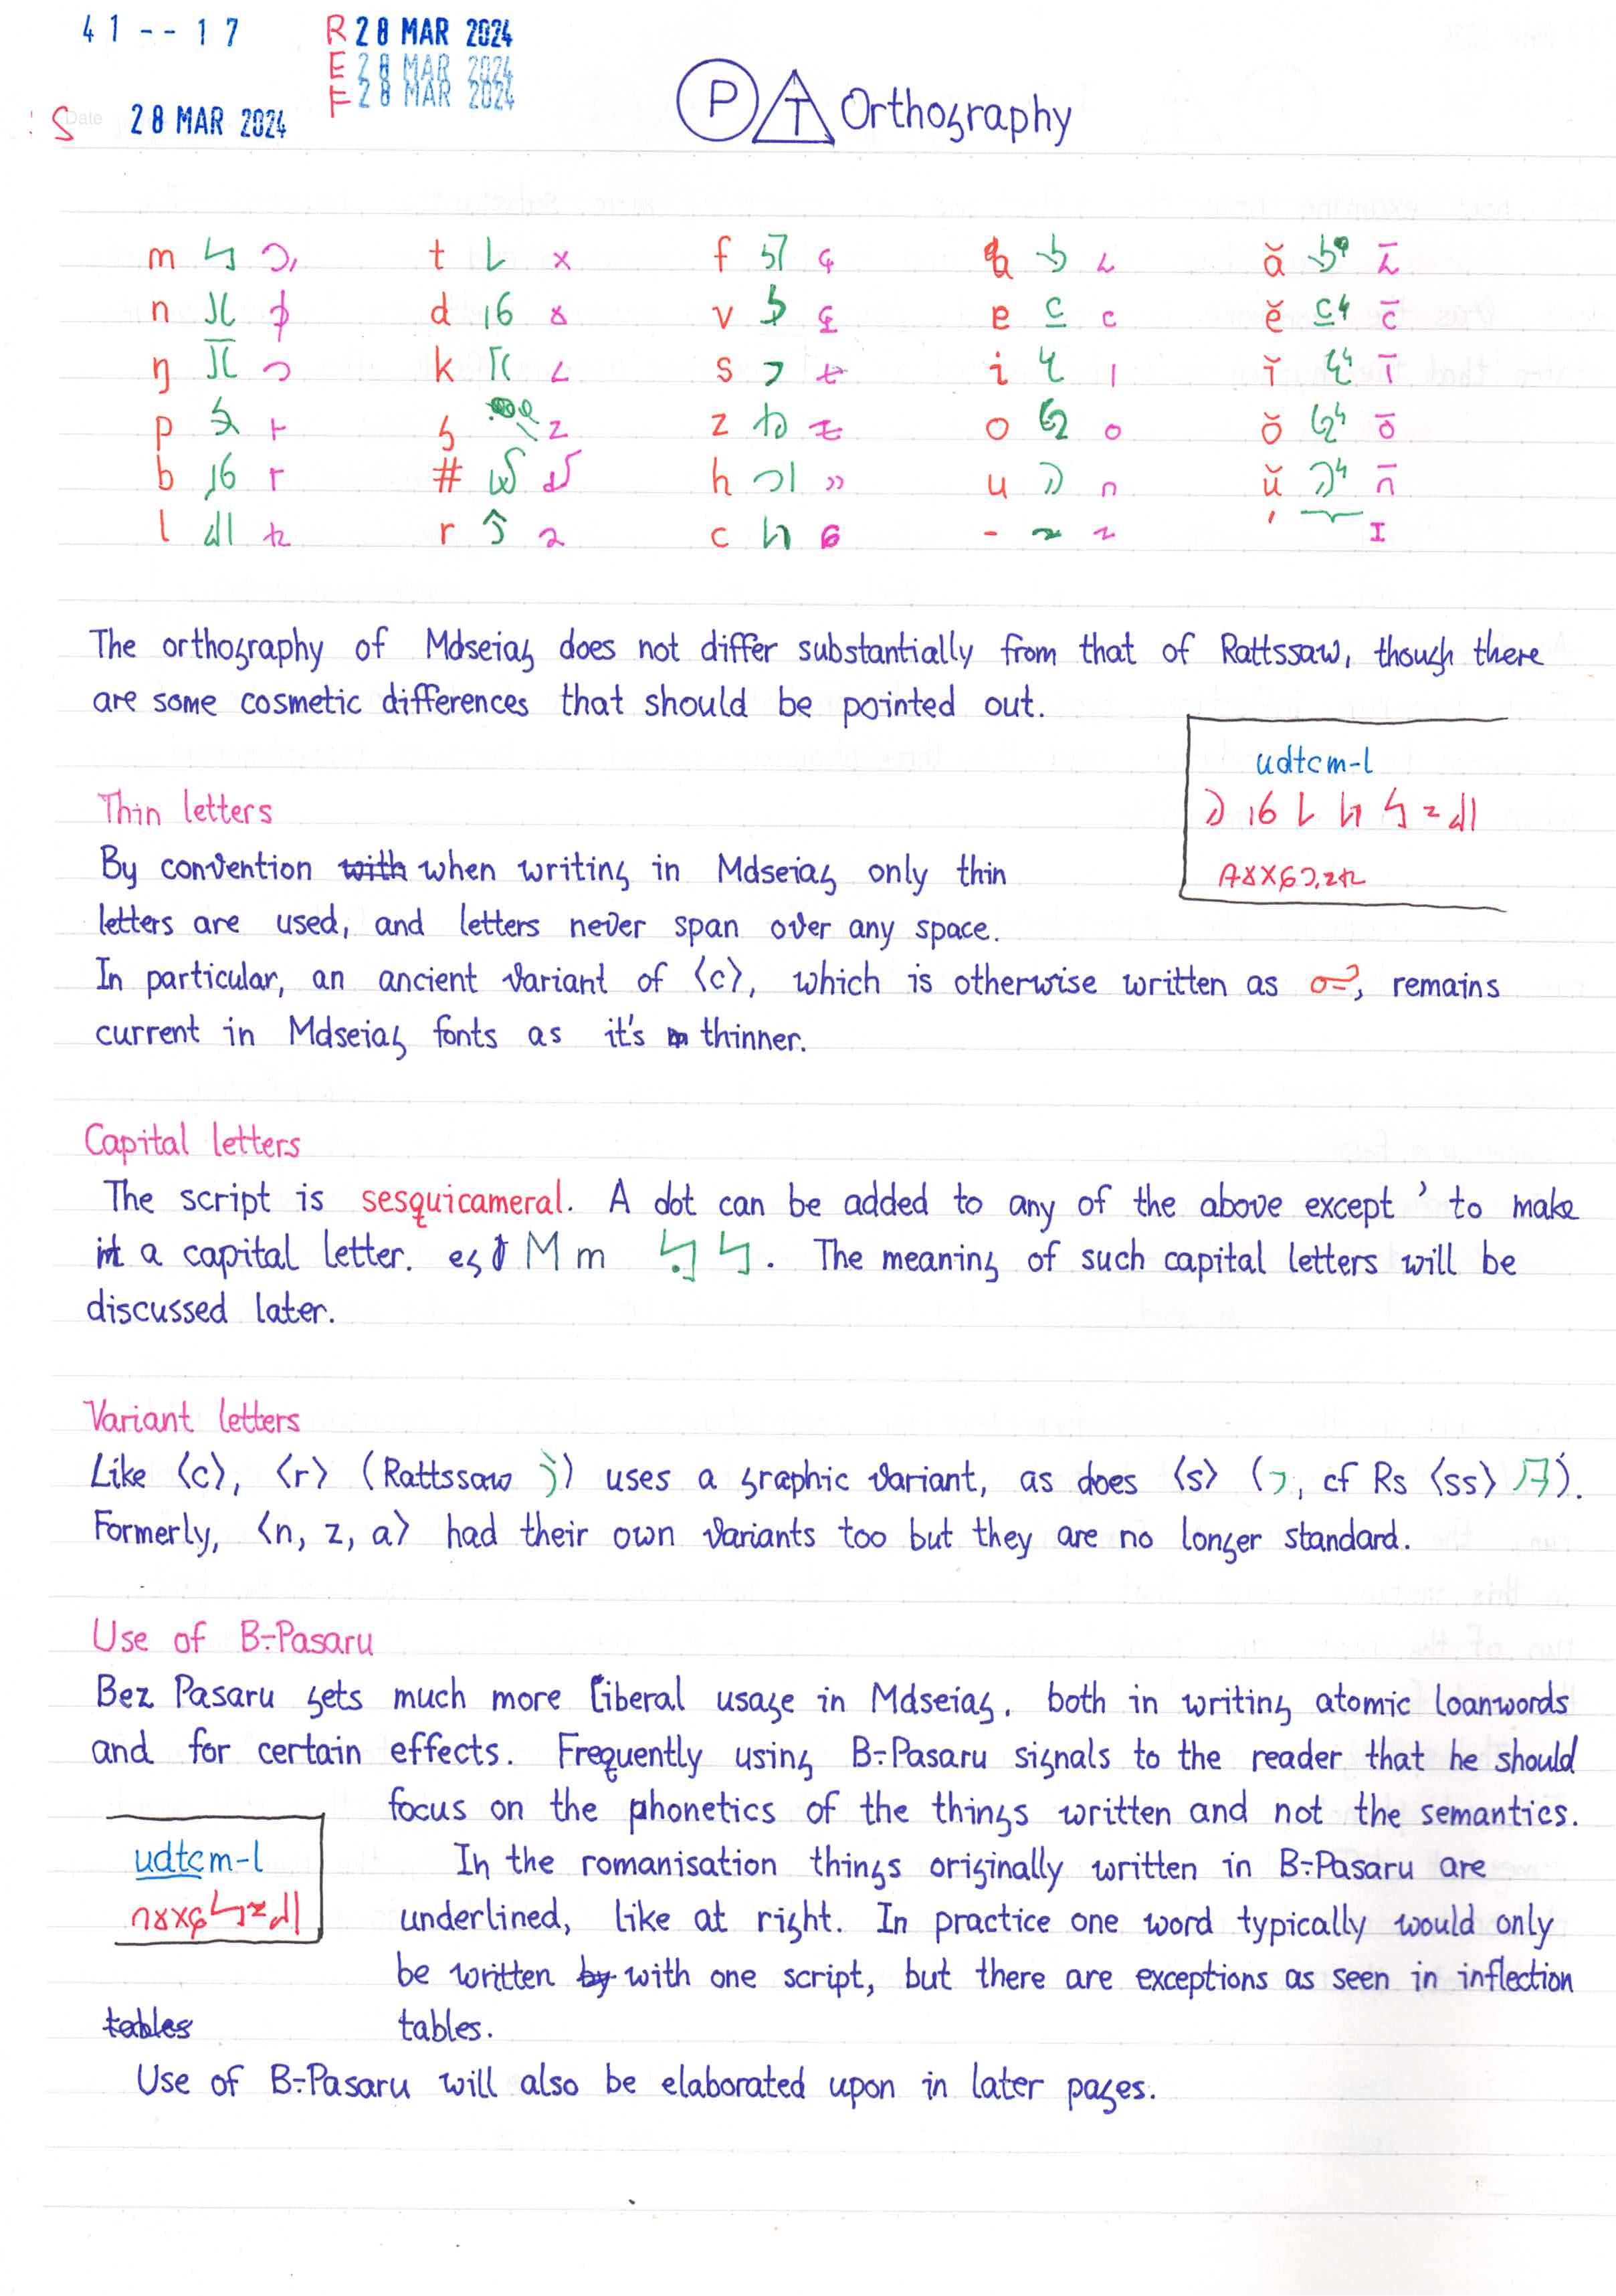 41--17
R 28 MAR 2024
E 28 MAR 2024
F 28 MAR 2024
S Date 28 MAR 2024
P T Orthography
m t f a ă
n d v e ĕ
ŋ k s i ĭ
p g z o ŏ
b # h u ŭ
l r c - '
The orthography of Mdseiag does not differ substantially from that of Rattssaw, though there
are some cosmetic differences that should be pointed out.
udtcm-l
Thin letters
By convention with when writing in Mdseiag only thin
letters are used, and letters never span over any space.
In particular, an ancient variant of ⟨c⟩, which is otherwise written as , remains
current in Mdseiag fonts as it's thinner.
Capital letters
The script is sesquicameral. A dot can be added to any of the above except ' to make
it a capital letter. eg M m . The meaning of such capital letters will be
discussed later.
Variant letters
Like ⟨c⟩, ⟨r⟩ (Rattssaw ) uses a graphic variant, as does ⟨s⟩ ( , cf Rs ⟨ss⟩ ).
Formerly, ⟨n, z, a⟩ had their own variants too but they are no longer standard.
Use of B-Pasaru
Bez Pasaru gets much more liberal usage in Mdseiag, both in writing atomic loanwords
and for certain effects. Frequently using B-Pasaru signals to the reader that he should
focus on the phonetics of the things written and not the semantics.
udtcm-l
In the romanisation things originally written in B-Pasaru are
underlined, like at right. In practice one word typically would only
be written by with one script, but there are exceptions as seen in inflection
tables tables.
Use of B-Pasaru will also be elaborated upon in later pages.